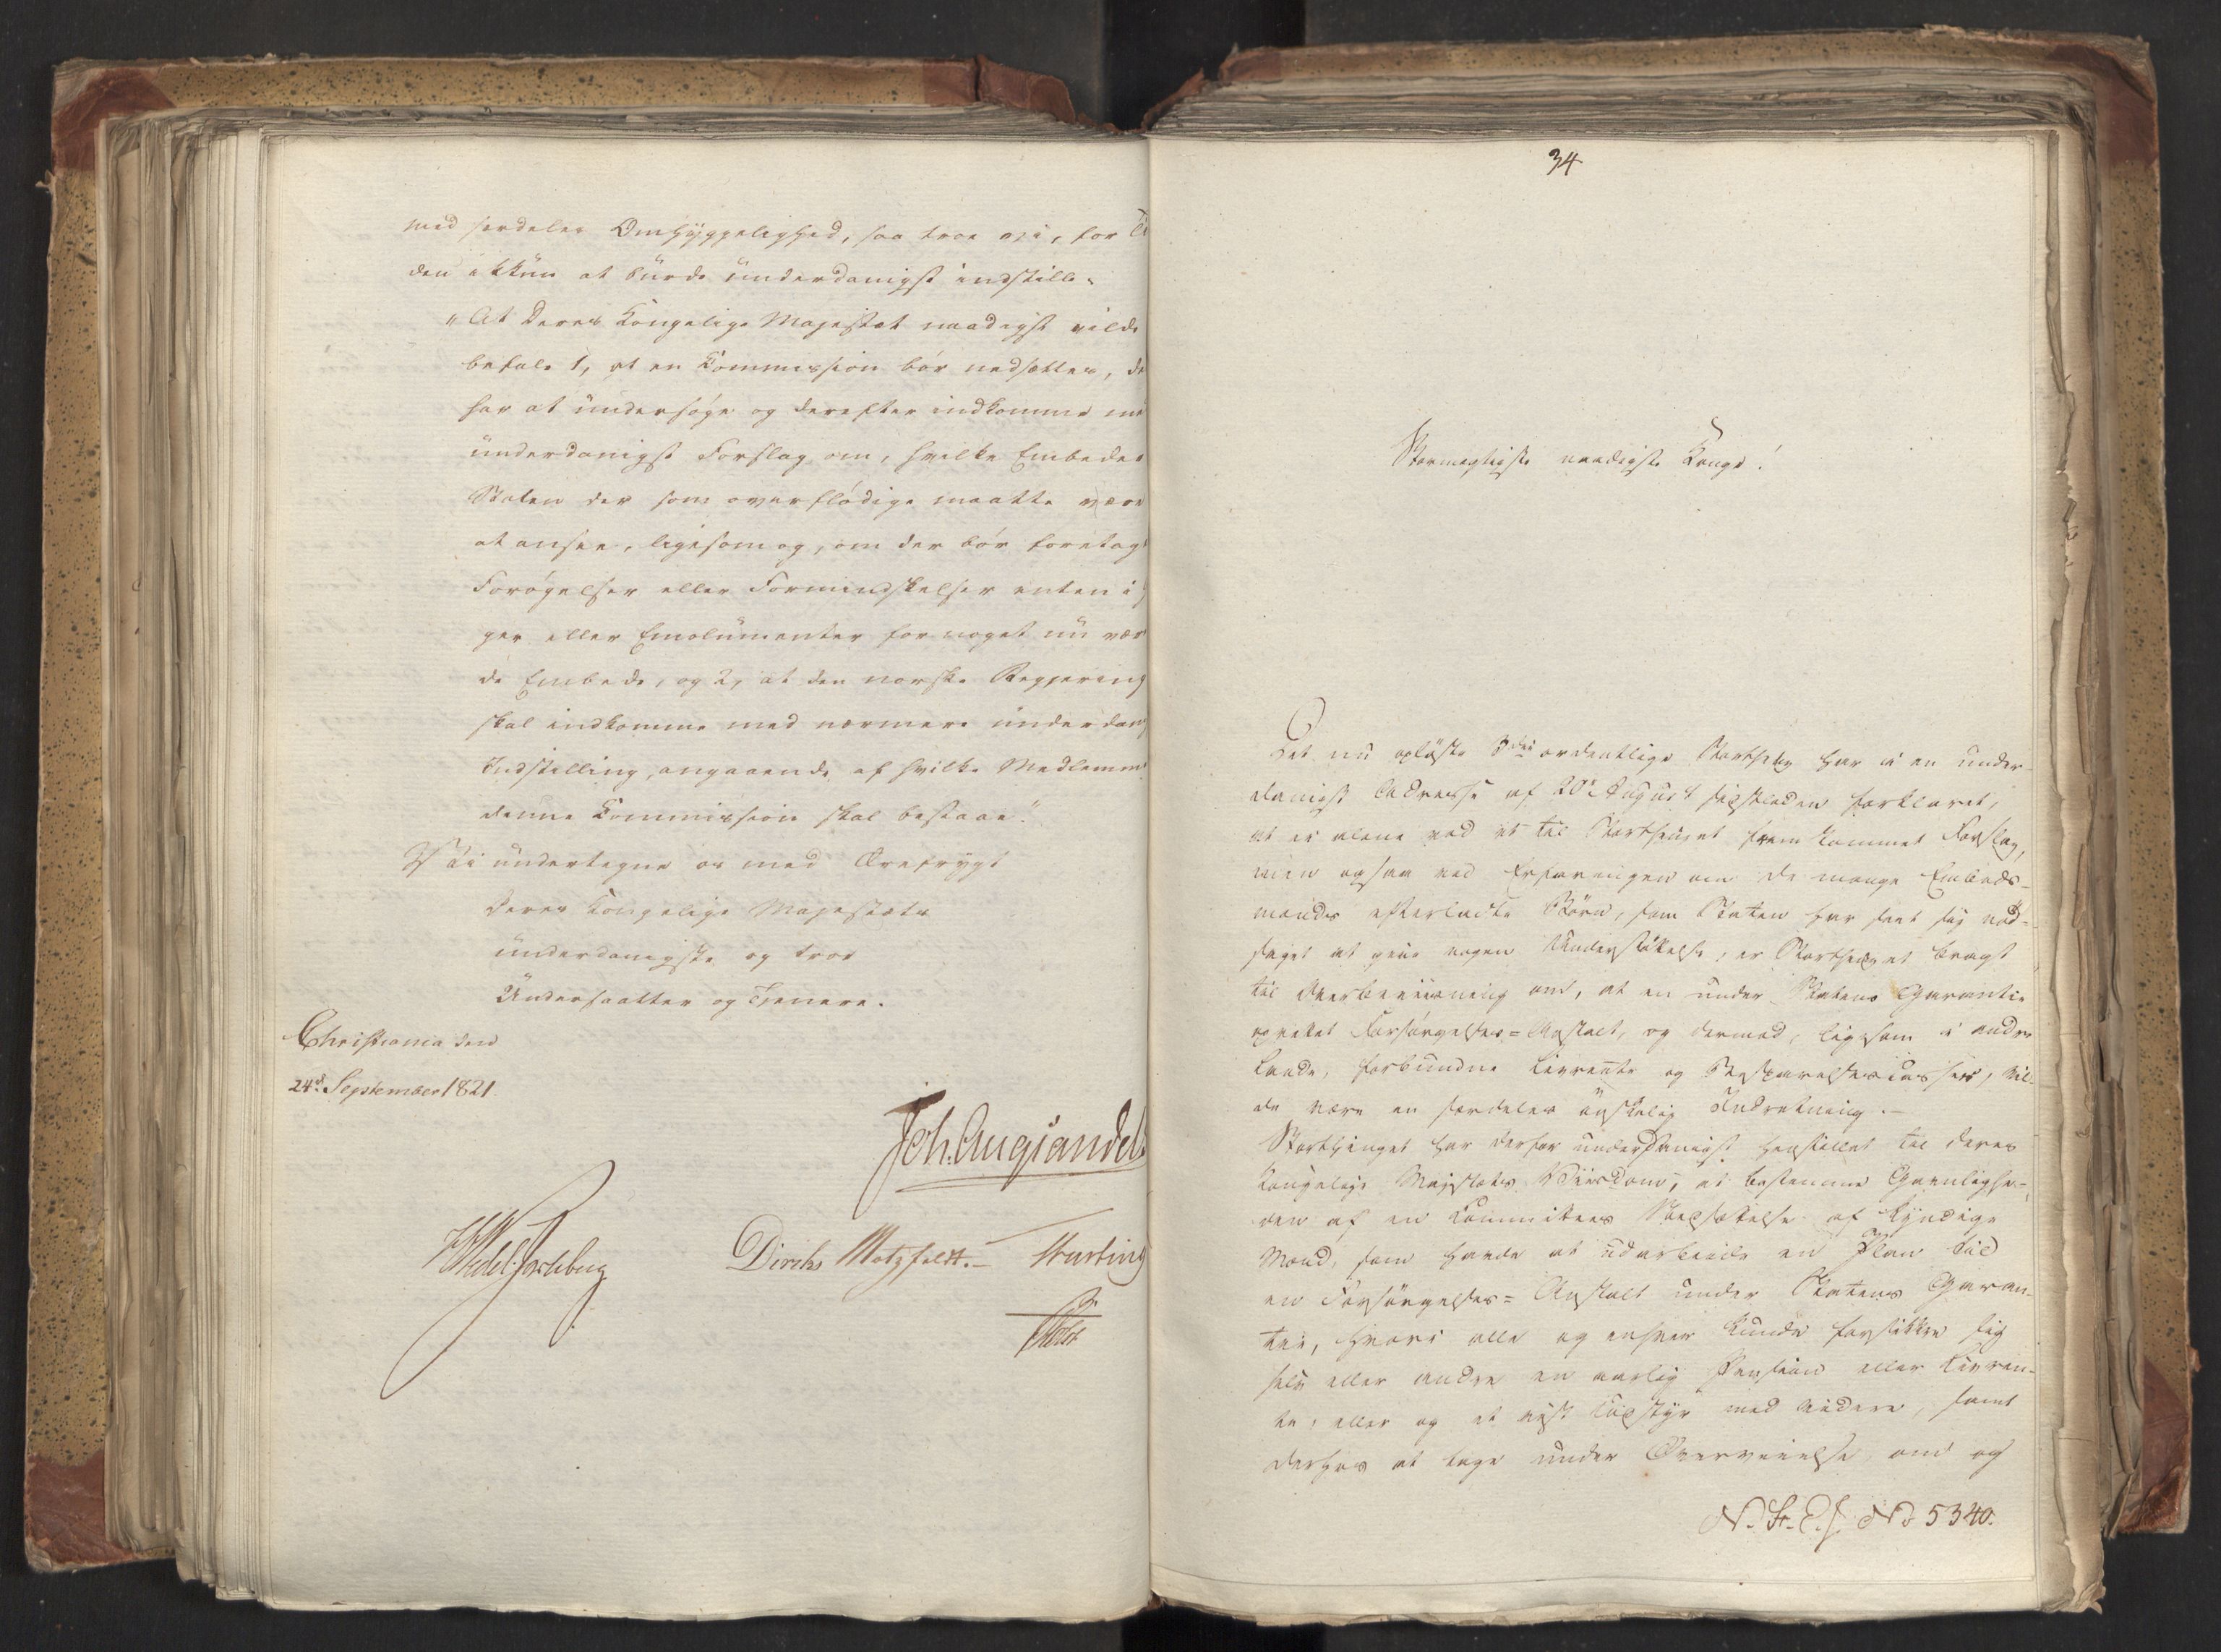 med serdeles Omhyggelighed, saa troe vi, for Ti
den ikkun at burde underdanigst indstille:
"At Deres Kongelige Majestæt naadigst vilde
befale 1, at en Kommission bør nedsættes, de
har at undersøge og derefter indkomme me
underdanigst Forslag om, hvilke Embeder
Staten der som overflødige maatte være
at ansee, ligesom og, om der bør foretag
Forøgelser eller Formindskelser enten i
ger eller Emolumenter for noget nu vær
de Embede, og 2, at den norske Regjering
skal indkomme med nærmere underdan
Indstilling, angaaende af hvilke Medlemm
denne Kommission skal bestaae."
Vi undertegne os med Ærefrygt
Deres Kongelige Majestæts
underdanigste og troe
Undersaatter og Tjenere.
Christiania den
24d September 1821.
Joh. Aug Sandels
Wedel Jarlsberg Dirch Motzfeldt.
34
Stormægtigste naadigste Konge!
Det nu opløste 3die ordentlige Storthing har i en under-
danigst Addresse af 20de August sidstleden forklaret,
at ei alene ved et til Storthinget fremkommet Forslag,
men ogsaa ved Erfaringen om de mange Embeds-
mænds efterladte Børn, som Staten har seet sig nød-
saget at give nogen Understøttelse, er Storthinget bragt
til Overbeviisning om, at en under Statens Garantie
oprettet Forsørgelses-Anstalt, og dermed, ligesom i andre
Lande, forbundne Livrente og Besparelsescasser, vil-
de være en særdeles ønskelig Indretning.—
Storthinget har derfor underdanigst henstillet til Deres
Kongelige Majestæts Viisdom, at bestemme Gavnlighe-
den af en Committees Nedsættelse af kyndige
Mænd, som havde at udarbeide en Plan til
en Forsørgelses-Anstalt under Statens Garan-
tie, hvori alle og enhver kunde forsikkre sig
selv eller andre en aarlig Pension eller Livren-
te, eller og et vist Udstyr med videre, samt
derhos at tage under Overveielse om og
No 5340.